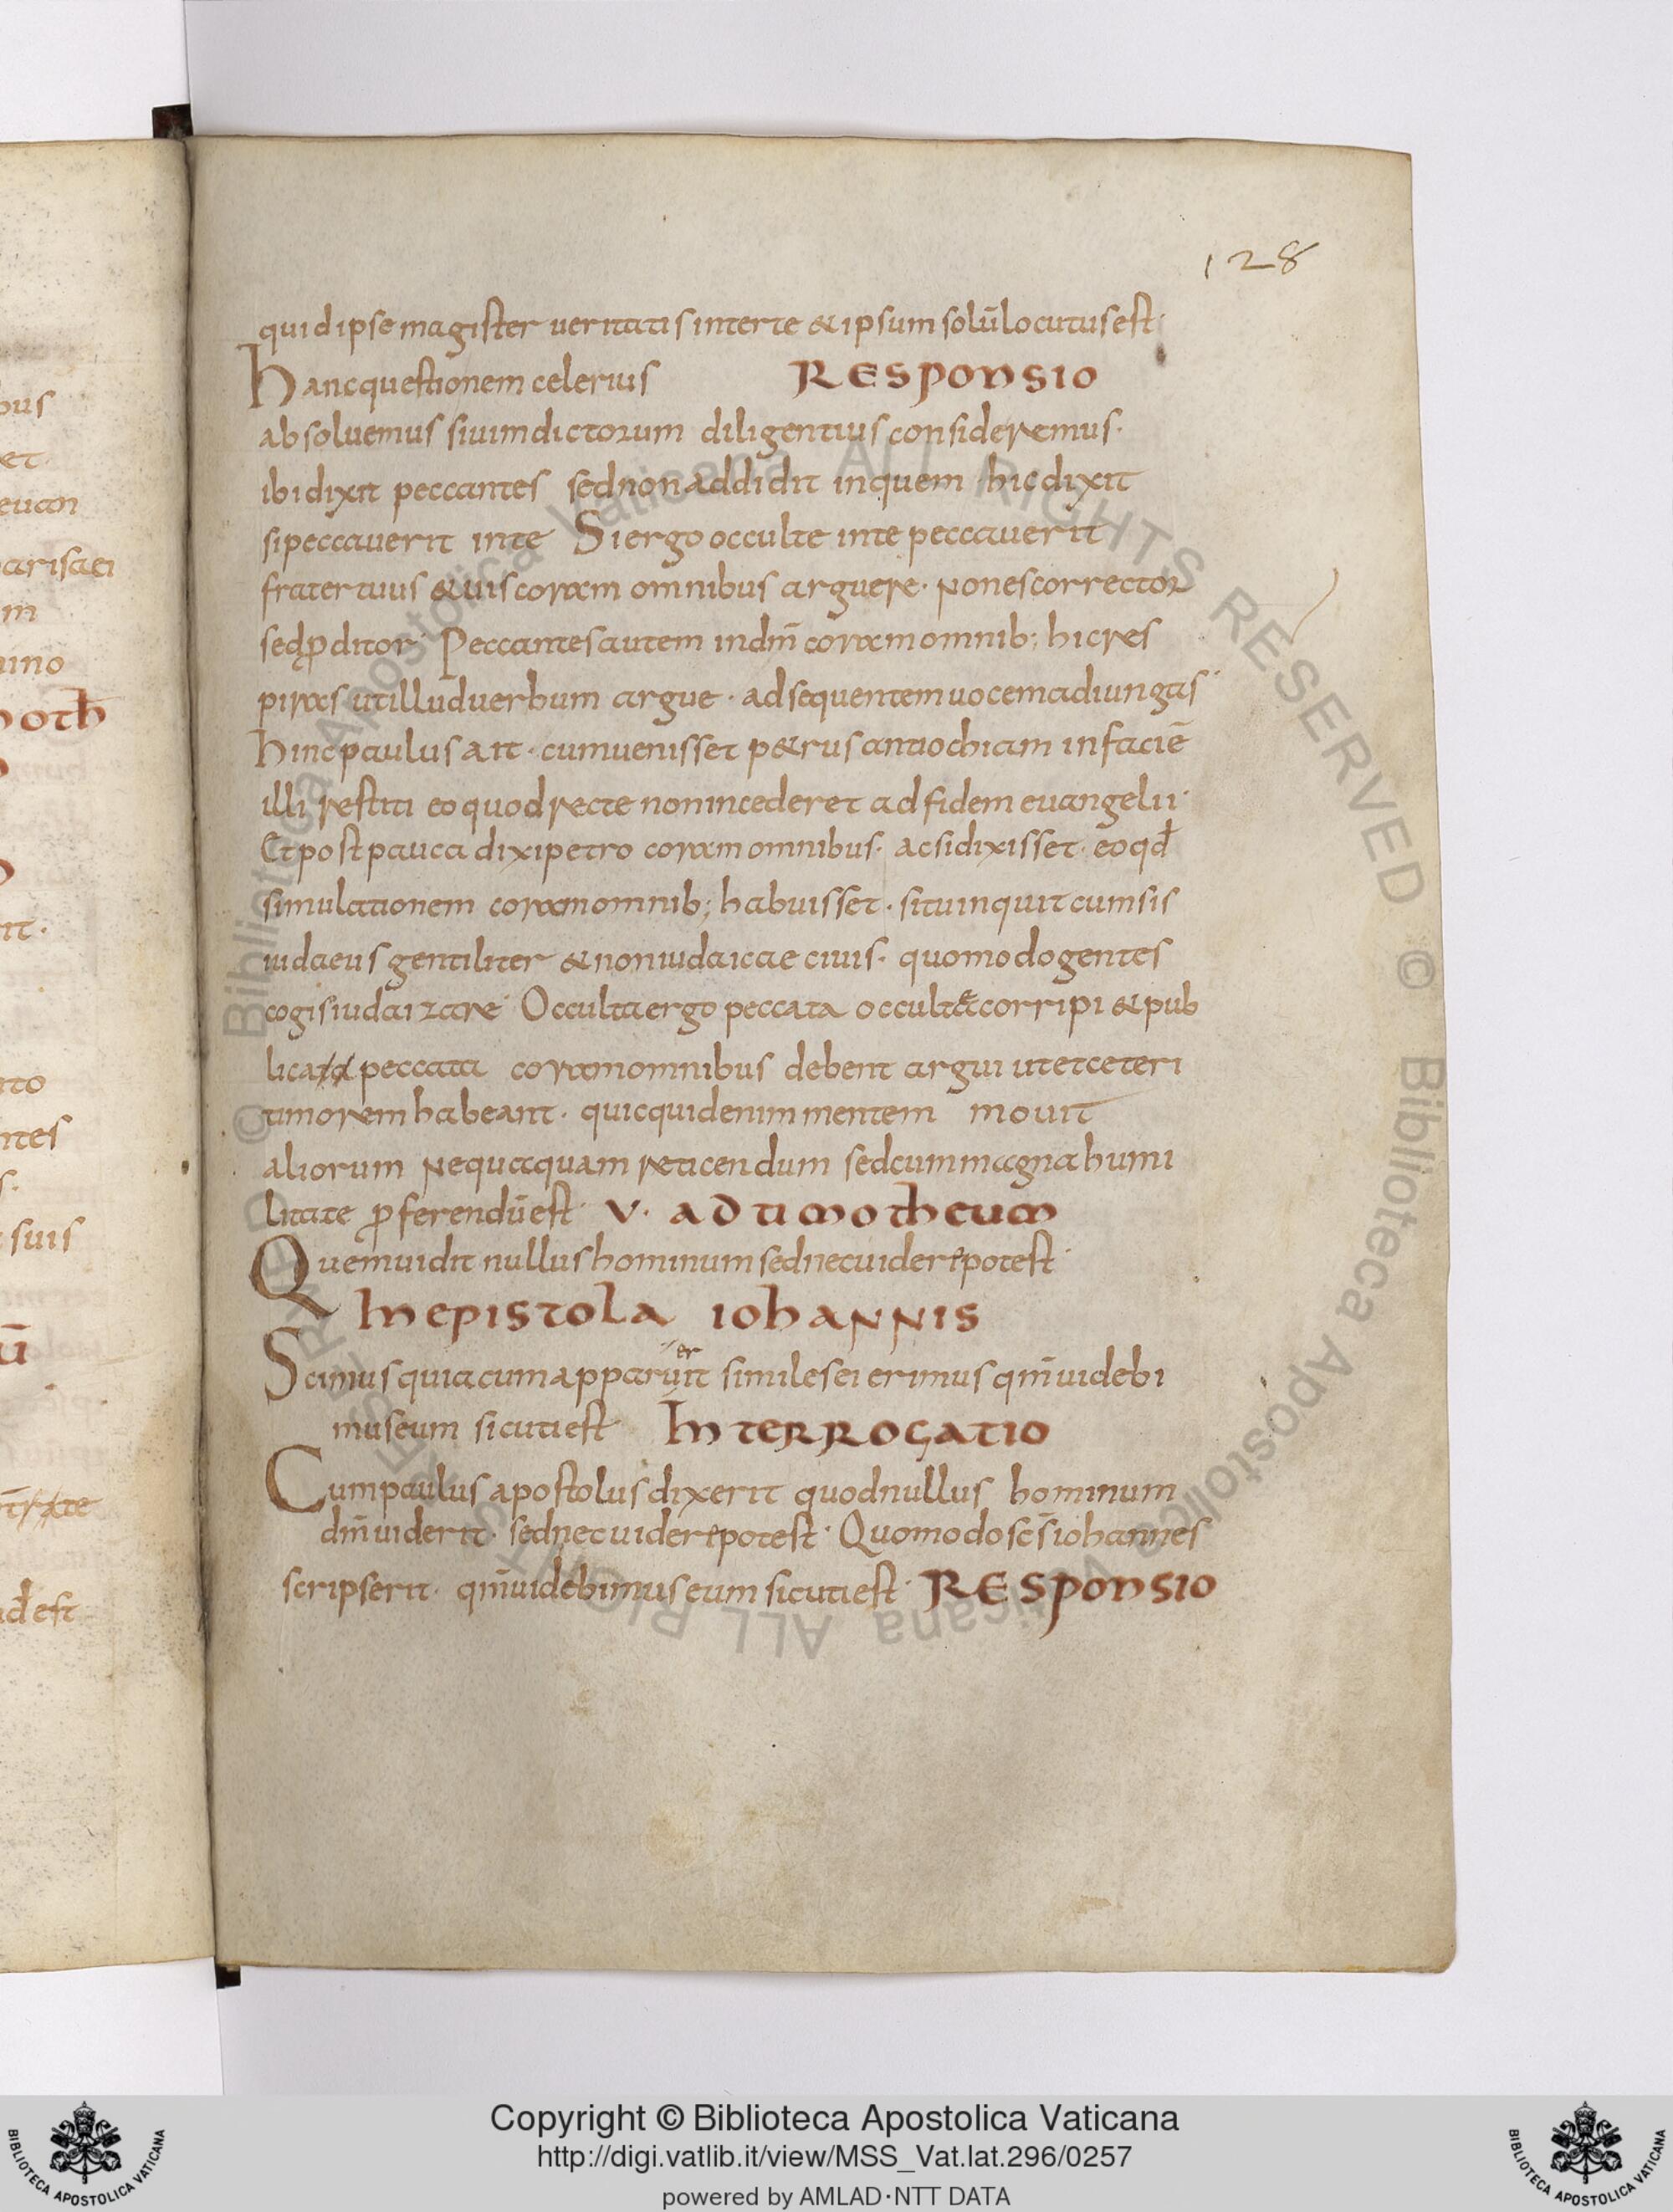 128
quid ipse magister ueritatis inter te & ipsum solū locutus est·
Hanc questionem celerius RESPONSIO
absoluemus si uim dictorum diligentius consideremus·
ibi dixit peccantes sed non addidit in quem hic dixit
si peccauerit in te Si ergo occulte in te peccauerit
frater tuus & uis coram omnibus arguere· Non es corrector
sed p̄ditor· Peccantes autem indm̄ coram omnib; hic res
piras ut illud uerbum argue· ad sequentem uocem adiungas·
hinc paulus ait· cum uenisset p&rus antiochiam in faciē
illi restiti eo quod recte non incederet ad fidem euangelii·
Et post pauca dixi petro coram omnibus· ac si dixisset· eo qđ
simulationem coram omnib; habuisset· si tu inquit cum sis
iudaeus gentiliter & non iudaicae ciuis· quomodo gentes
cogis iudaizare· Occulta ergo peccata occultae corripi & pub
licata peccata coram omnibus debent argui ut et ceteri
timorem habeant· quicquid enim mentem mouit
aliorum Nequaquam reticendum sed cum magna humi
litate p̱ferendū est· V· AD TIMOTHEUM
Quem uidit nullus hominum sed nec uidere potest·
IN EPISTOLA IOHANNIS
er
Scimus quia cum apparuit similes ei erimus qm̄ uidebi
mus eum sicuti est INTERROGATIO
Cum paulus apostolus dixerit quod nullus hominum
dm̄ uiderit· sed nec uidere potest· Quomodo sc̄s iohannes
scripserit· qm̄ uidebimus eum sicuti est· RESPONSIO
bus
et·
euan
arisaei
m
oth
it·
ntes
suis
ū
đ est
© Biblioteca Apostolica Vaticana ALL RIGHTS RESERVED © Biblioteca Apostolica Vaticana ALL RIGHTS RESERVED
BIBLIOTECA APOSTOLICA VATICANA
Copyright © Biblioteca Apostolica Vaticana
http://digi.vatlib.it/view/MSS_Vat.lat.296/0257
powered by AMLAD·NTT DATA
BIBLIOTECA APOSTOLICA VATICANA